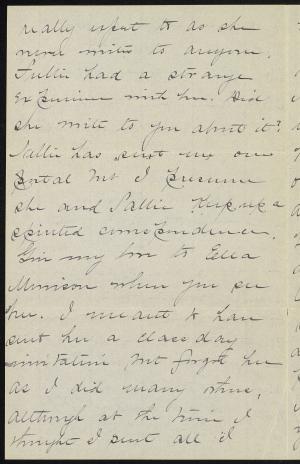 really expect to as she
never writes to anyone.
Sallie had a strange
experience with her. Did
she write to you about it?
Sallie has sent me one
postal but I presume
she and Sallie keep up a
spirited correspondence.
Give my love to Ella
Morrison when you see
her. I meant to have
sent her a class day
invitation but forgot her
as I did many others,
although at the time I
thought I sent all I